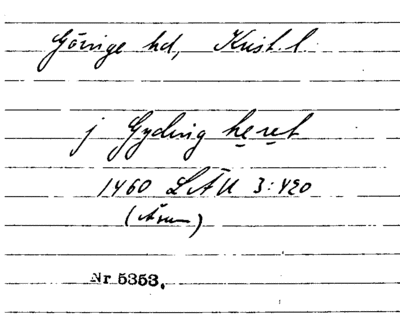 Göinge hd, Krist. l.
j Gyding heret
1460 LÅU 3:420
(Åsum)
Nr 5353.